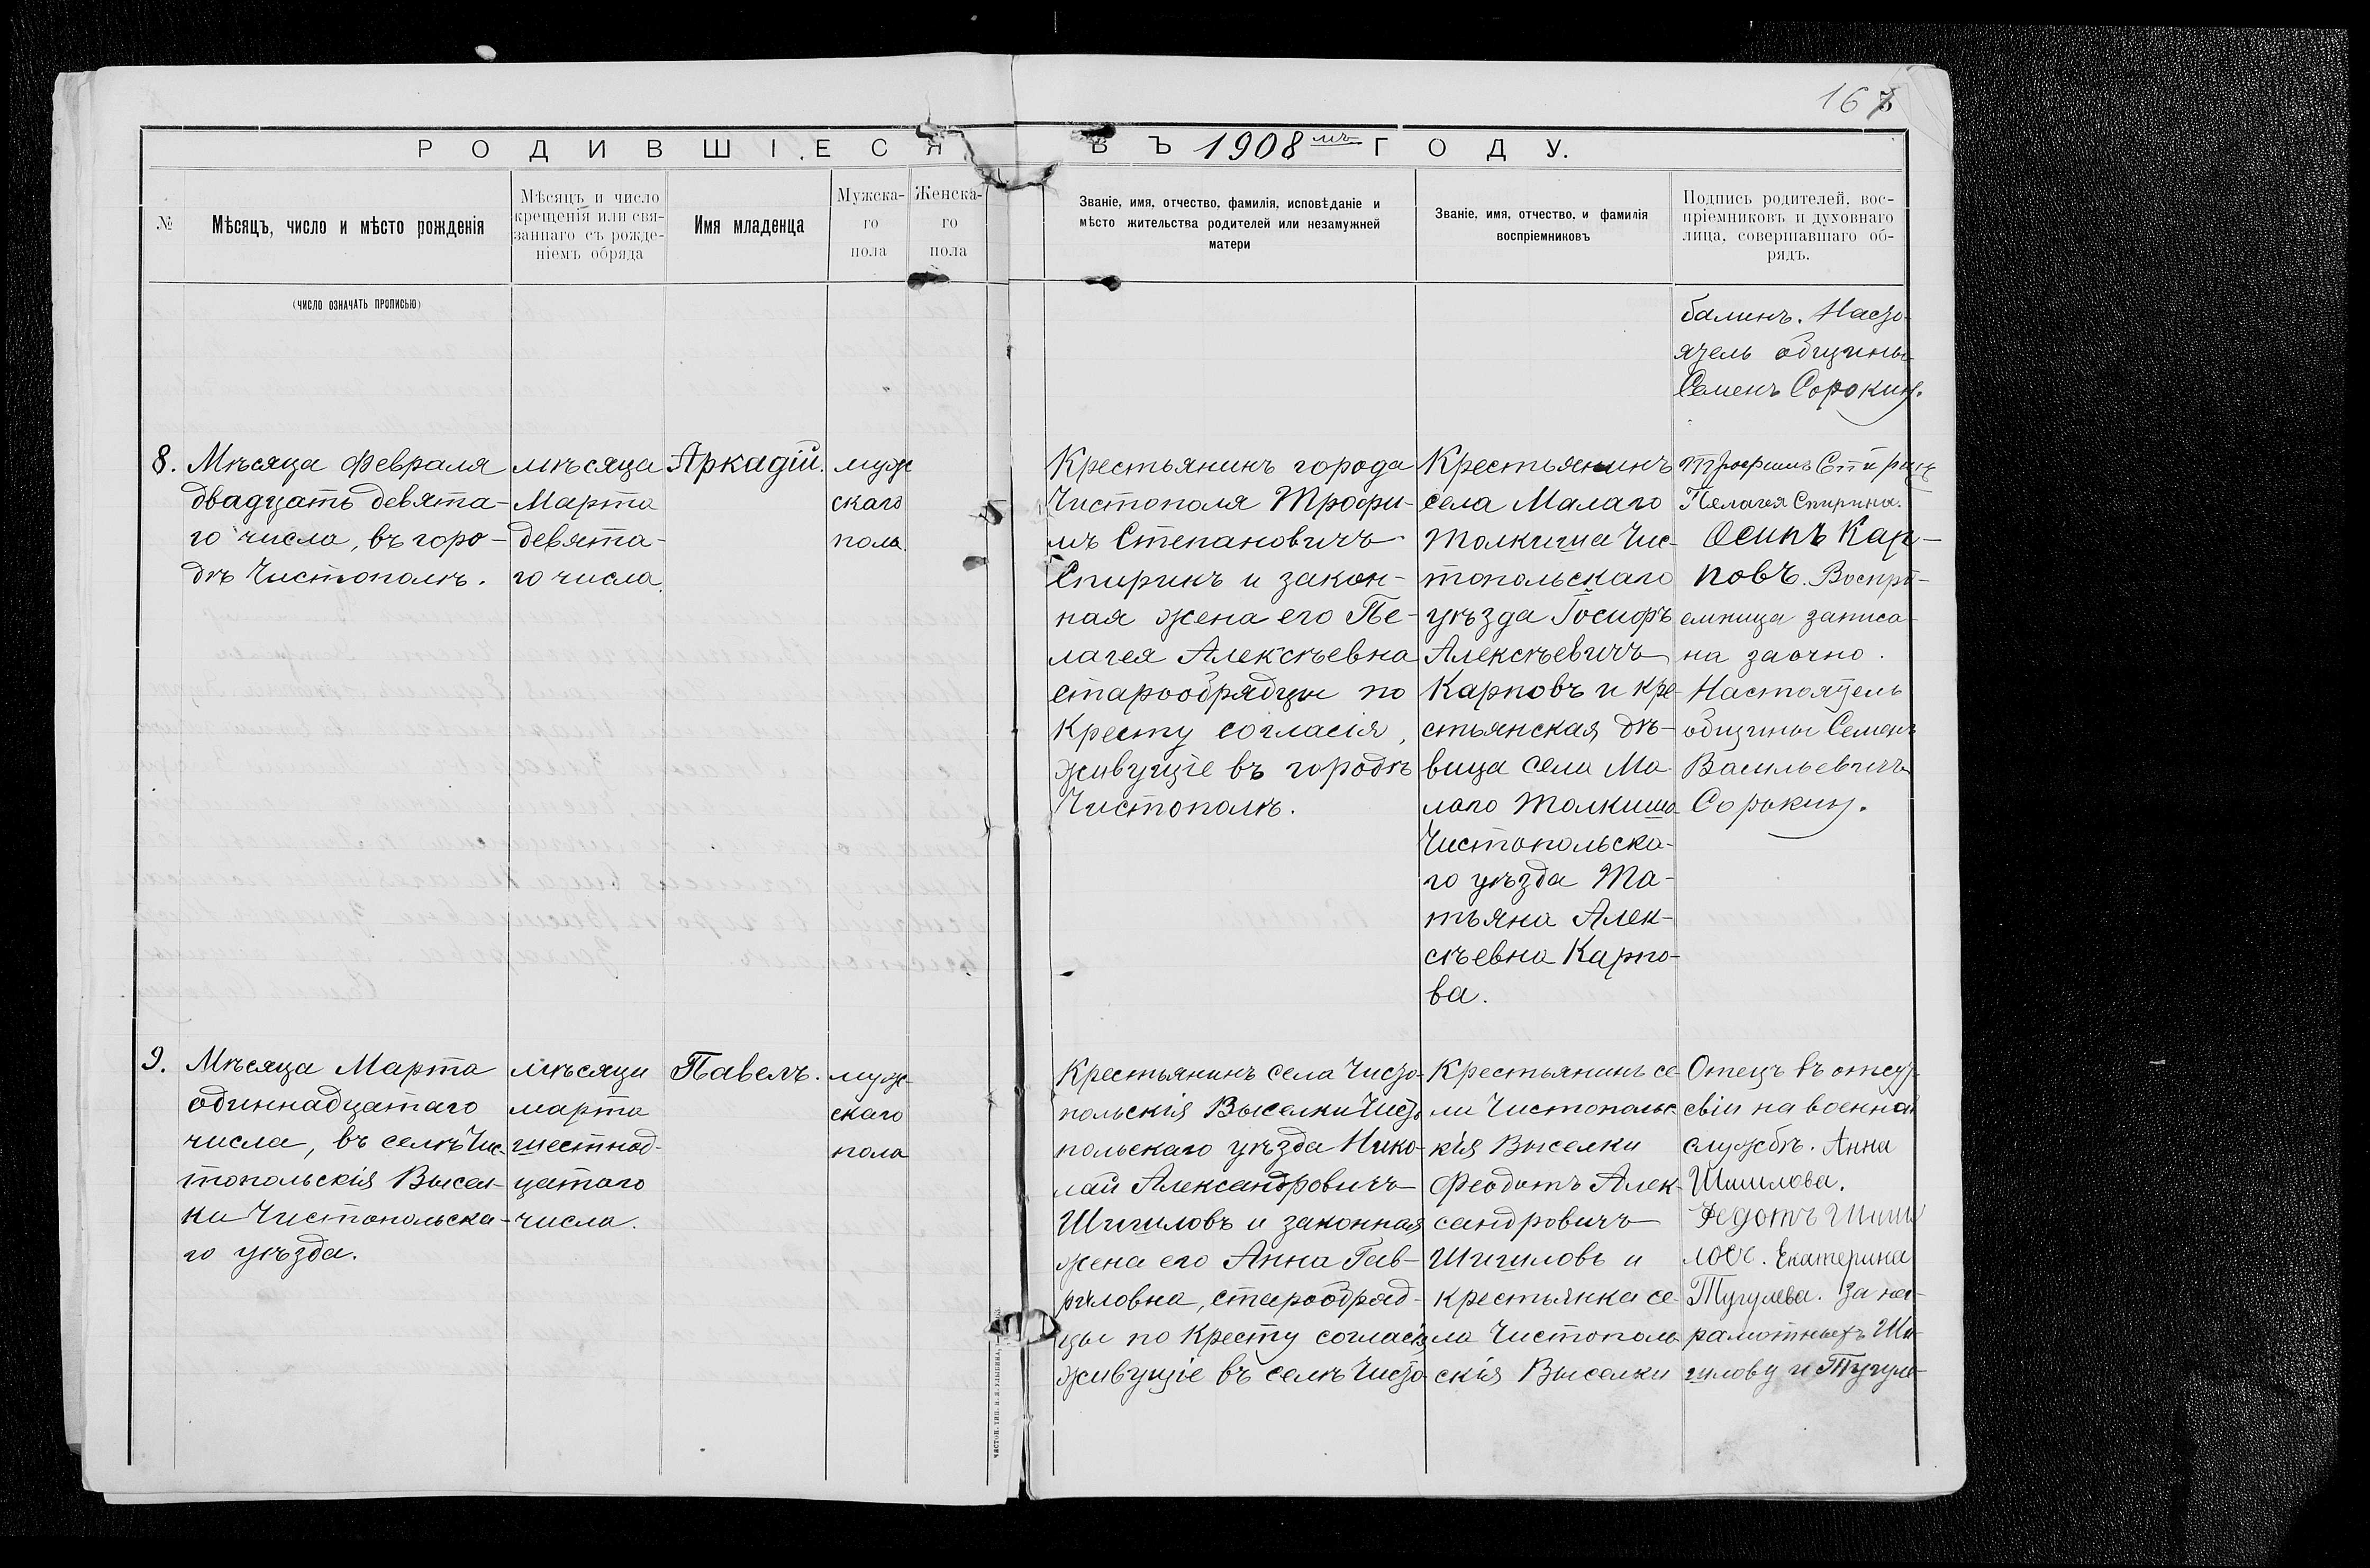 167
РОДИВШІЕСЯ ВЪ 1908мъ ГОДУ.
№
Мѣсяцъ, число и мѣсто рожденія
Мѣсяцъ и число
крещенія или свя-
заннаго съ рожде-
ніемъ обряда
Имя младенца
Мужска-
го
пола
Женска-
го
пола
Званіе, имя, отчество, фамилія, исповѣданіе и
мѣсто жительства родителей или незамужней
матери
Званіе, имя, отчество, и фамилія
воспріемниковъ
Подпись родителей, вос-
пріемниковъ и духовнаго
лица, совершавшаго об-
рядъ.
(ЧИСЛО ОЗНАЧАТЬ ПРОПИСЬЮ)
балинъ. Насто-
ятель общины
Семенъ Сорокинъ.
8.
Мѣсяца Февраля
двадцать девята-
го числа, въ горо-
дѣ Чистополѣ.
мѣсяца
Марта
девята-
го числа.
Аркадій.
муж
скаго
пола.
Крестьянинъ города
Чистополя Трофи-
мъ Степановичъ
Спиринъ и закон-
ная жена его Пе-
лагея Алексѣевна
старообрядцы по
Кресту согласія,
живущіе въ городѣ
Чистополѣ.
Крестьянинъ
села Малаго
Толкиша Чис-
топольскаго
уѣзда Іосифъ
Алексѣевичъ
Карповъ и кре-
стьянская дѣ-
вица села Ма-
лаго Толкиша
Чистопольска-
го уѣзда Та-
тьяна Алек-
сѣевна Карпо-
ва.
Трофимъ Спиринъ
Пелагея Спирина.
Осипъ Кар-
повъ. Воспрі-
емница записа-
на заочно.
Настоятель
общины Семенъ
Васильевичъ
Сорокинъ.
9.
Мѣсяца Марта
одиннадцатаго
числа, въ селѣ Чис-
топольскія Высел-
ки Чистопольска-
го уѣзда.
мѣсяца
марта
шестнад-
цатаго
числа.
Павелъ.
муж-
скаго
пола
Крестьянинъ села Чисто-
польскія Выселки Чисто
польскаго уѣзда Нико-
лай Александровичъ
Шишловъ и законная
жена его Анна Гав-
риловна, старообряд-
цы по Кресту согласія
живущіе въ селѣ Чисто
Крестьянинъ се-
ла Чистопольс
кія Выселки
Феодотъ Алек-
сандровичъ
Шишловъ и
крестьянка се-
ла Чистополь
скія Выселки
Отецъ въ отсут-
свіи на военной
службѣ. Анна
Шишлова.
Федотъ Шиш
ловъ. Екатерина
Тугулева. За не-
рамотныхъ Ши-
шлову и Тугуле-